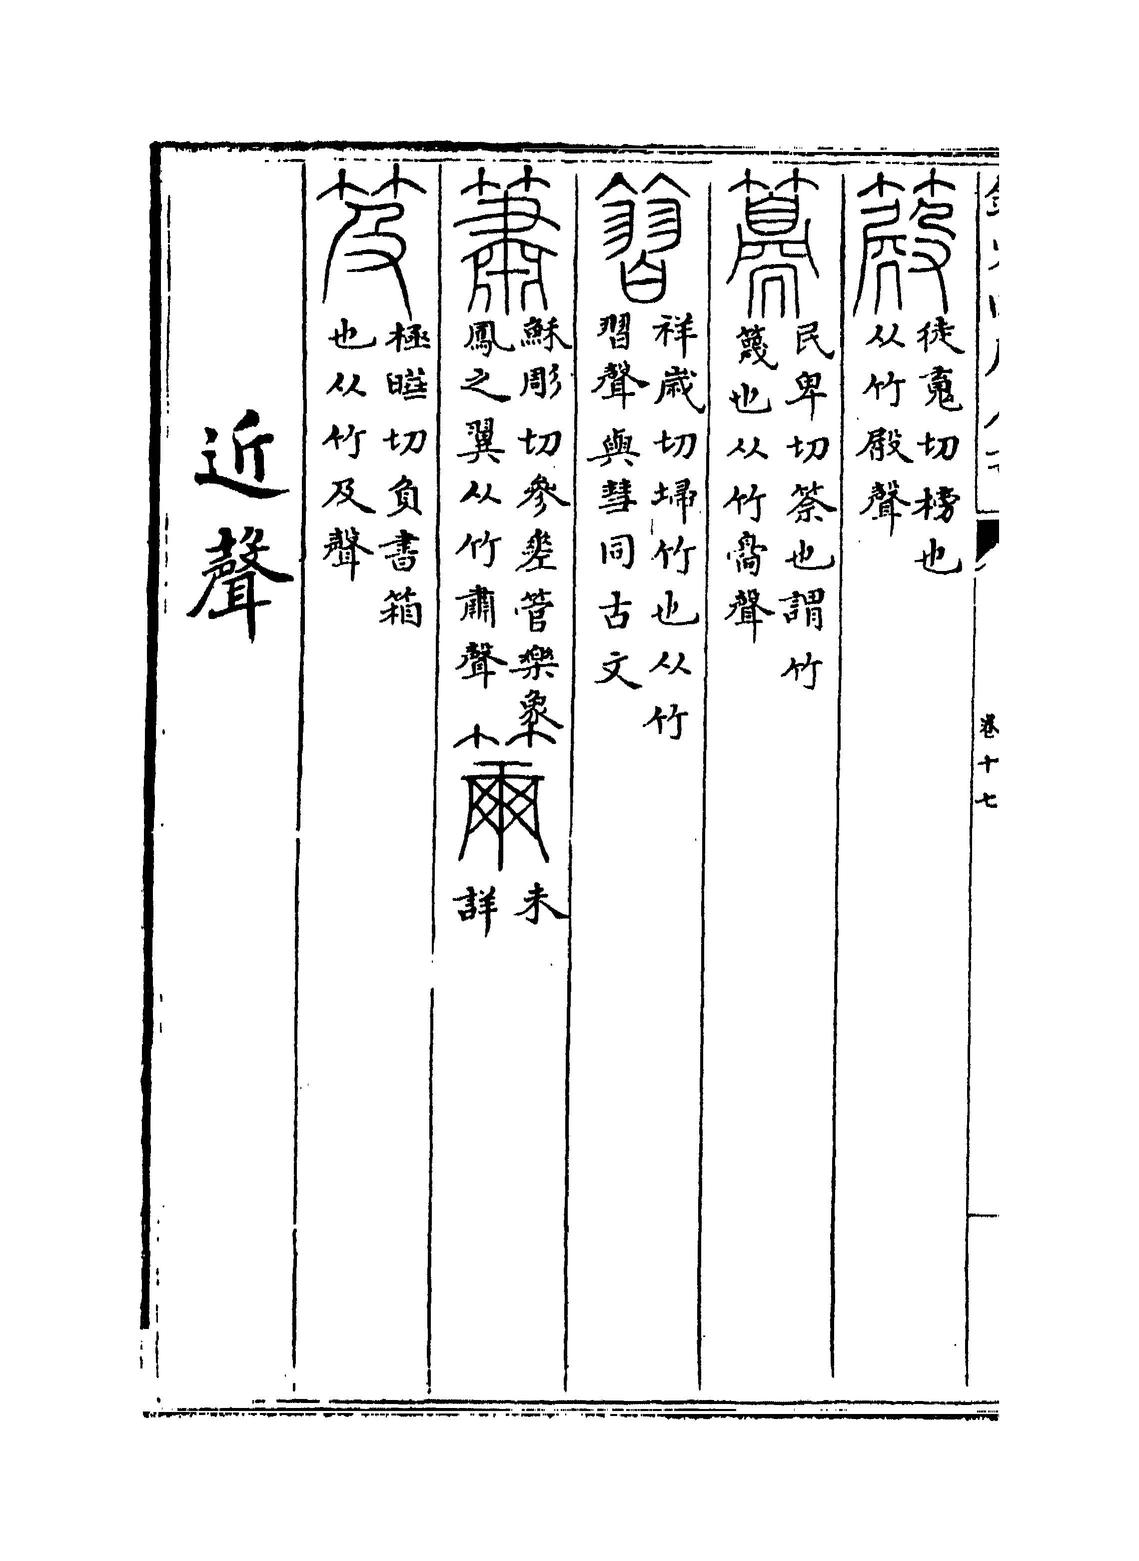 徒䰟切榜也
从竹殿聲
民卑切䇲也謂竹
篾也从竹臱聲
祥歲切埽竹也从竹
習聲與彗同古文
簫
穌彫切參差管樂象
鳳之翼从竹肅聲
未
詳
笈
極曄切負書箱
也从竹及聲
近聲
卷十七